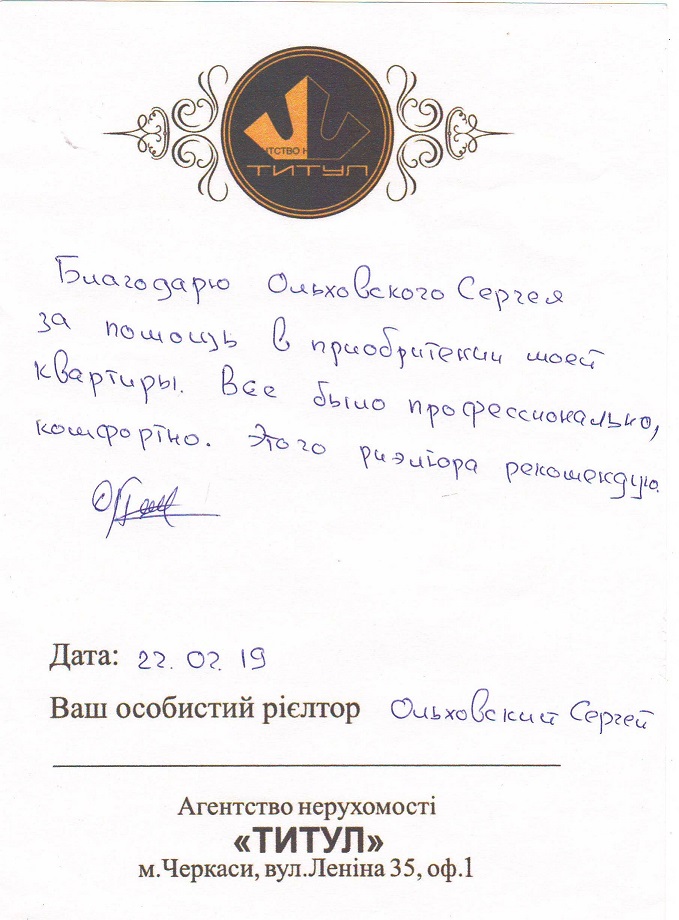 ТСТВО Н
ТИТУЛ
Благодарю Ольховского Сергея
за помощь в приобритении моей
квартиры. Все было профессионально,
комфортно. Этого риэлтора рекомендую.
Дата: 22.02.19
Ваш особистий рієлтор Ольховский Сергей
Агентство нерухомості
«ТИТУЛ»
м.Черкаси, вул.Леніна 35, оф.1